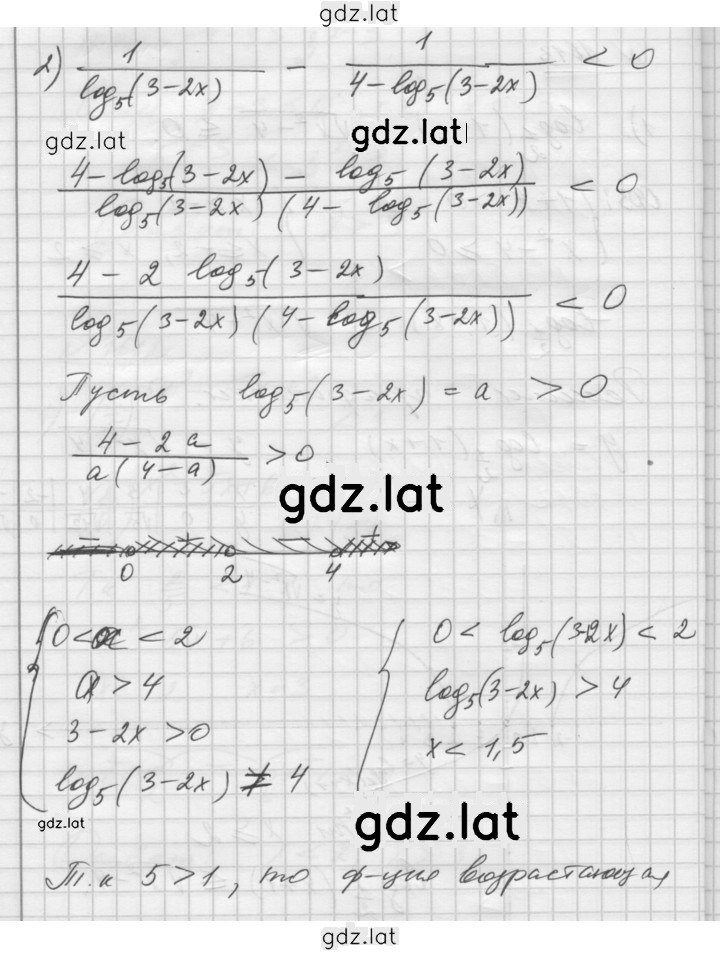 gdz.lat
2) 1/log₅(3-2x) - 1/(4-log₅(3-2x)) < 0
gdz.lat
gdz.lat
(4-log₅(3-2x) - log₅(3-2x))/(log₅(3-2x)(4-log₅(3-2x))) < 0
(4-2 log₅(3-2x))/(log₅(3-2x)(4-log₅(3-2x))) < 0
Пусть log₅(3-2x) = a > 0
(4-2a)/(a(4-a)) > 0
gdz.lat
- + - +
0 2 4
{ 0 < a < 2 { 0 < log₅(3-2x) < 2
a > 4 log₅(3-2x) > 4
3-2x > 0 x < 1,5
log₅(3-2x) ≠ 4
gdz.lat
gdz.lat
Т.к 5 > 1, то ф-ция возрастающая
gdz.lat